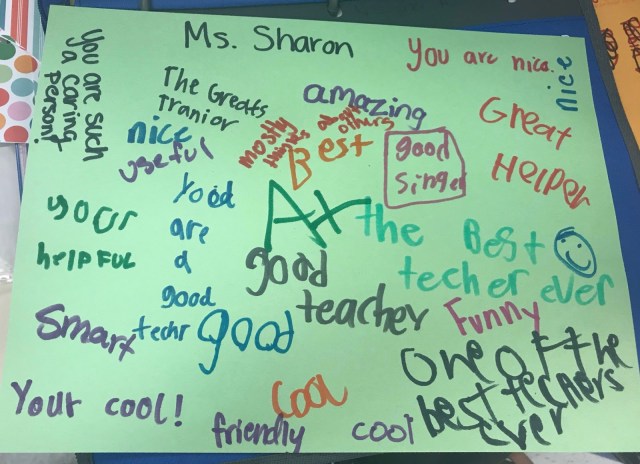 Ms. Sharon
You are nice.
nice
You are such
a caring
person!
The Greats
Tranior
amazing
nice
useful
mostly
thinks
about
others
Best
good
singer
Great
Helper
your
helpful
Yood
are
a
good
techr
Ar
good
teacher
the Best
techer ever
Smart
good
Funny
one of the
best techers
ever
Your cool!
cool
friendly
cool